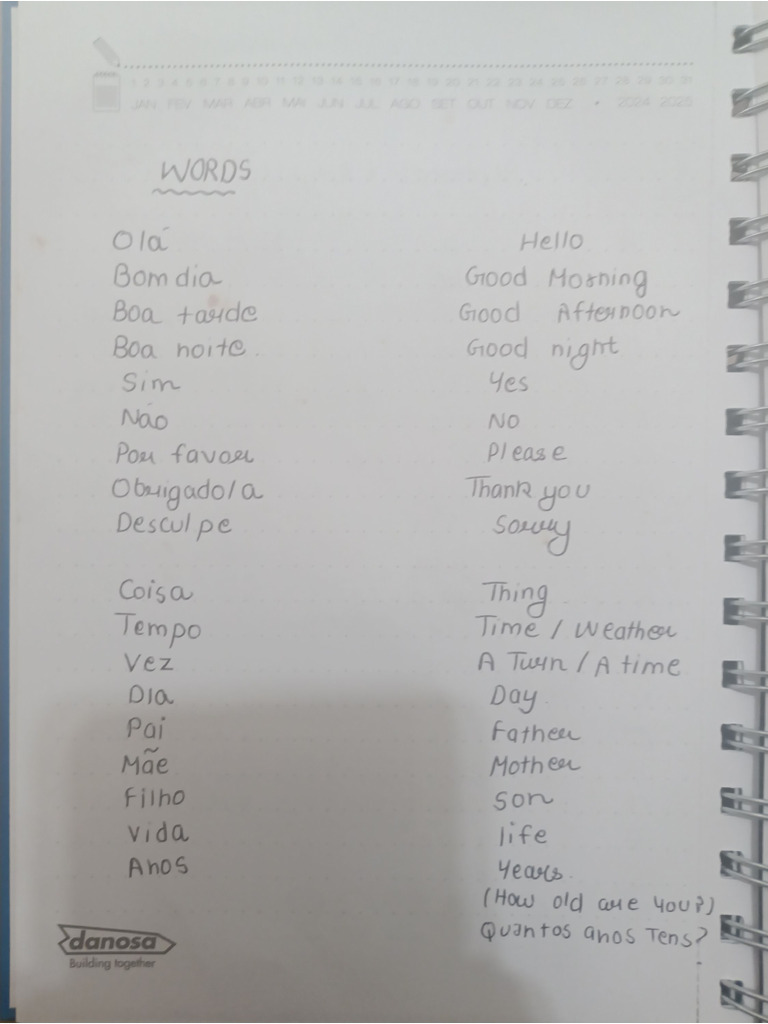 1 2 3 4 5 6 7 8 9 10 11 12 13 14 15 16 17 18 19 20 21 22 23 24 25 26 27 28 29 30 31
JAN FEV MAR ABR MAI JUN JUL AGO SET OUT NOV DEZ • 2024 2025
WORDS
Olá Hello
Bom dia Good Morning
Boa tarde Good Afternoon
Boa noite Good night
Sim Yes
Não No
Por favor Please
Obrigado/a Thank you
Desculpe Sorry
Coisa Thing
Tempo Time / Weather
Vez A Turn / A time
Dia Day
Pai Father
Mãe Mother
Filho Son
Vida life
Anos Years
(How old are you?)
Quantos anos Tens?
danosa
Building together